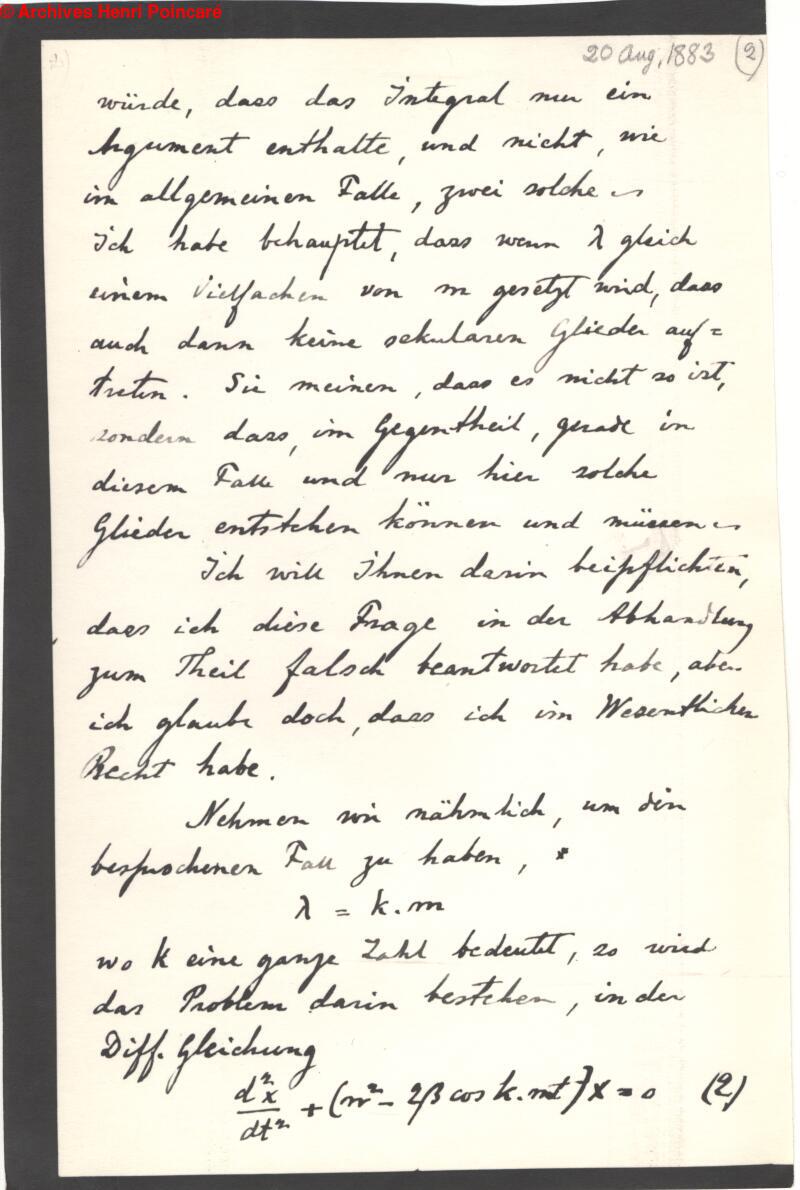 © Archives Henri Poincaré
20 Aug. 1883 (2)
würde, dass das Integral nur ein
Argument enthalte, und nicht, wie
im allgemeinen Falle, zwei solche
Ich habe behauptet, dass wenn λ gleich
einem Vielfachen von m gesetzt wird, dass
auch dann keine sekularen Glieder auf=
treten. Sie meinen, dass es nicht so ist,
sondern dass, im Gegentheil, gerade in
diesem Falle und nur hier solche
Glieder entstehen können und müssen
Ich will Ihnen darin beipflichten,
dass ich diese Frage in der Abhandlung
zum Theil falsch beantwortet habe, aber
ich glaube doch, dass ich im Wesentlichen
Recht habe.
Nehmen wir nähmlich, um den
besprochenen Fall zu haben, *
λ = k.m
wo k eine ganze Zahl bedeutet, so wird
das Problem darin bestehen, in der
Diff. Gleichung
d²x/dt² + (m² - 2β cos k.mt) x = 0 (2)